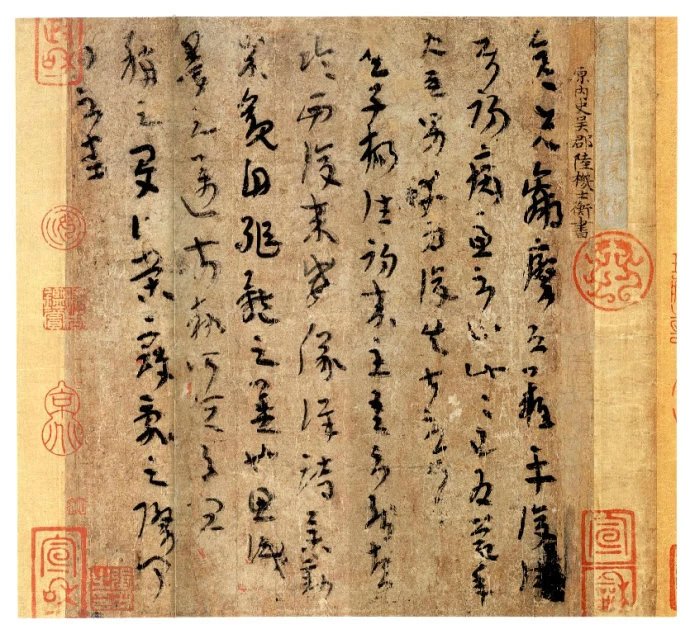 原內史吳郡陸機士衡書
彦先羸瘵恐難平復往
屬初病慮不止此此已為慶承
使唯男幸為復失前憂耳
吳子楊往初來主吾不能盡
臨西復來威儀詳跱舉動
成觀自軀體之美也思識
量之邁前勢所恒有宜
稱之夏伯榮寇亂之際聞
問不悉
宣和
政和
宣和